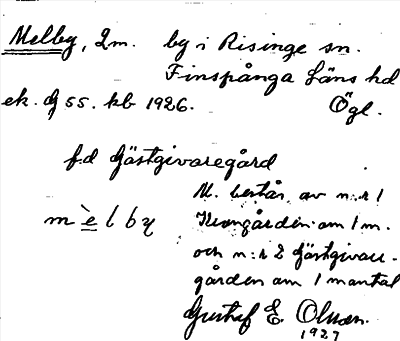 Melby, 2 m. by i Risinge sn.
Finspånga Läns hd
ek. bl 55. kb 1926. Ögl.
f.d Gästgivaregård
M. består av n:r 1
mèlby Kvarngården om 1 m.
och n:r 2 Gästgivare-
gården om 1 mantal
Gustaf E. Olsson.
1927